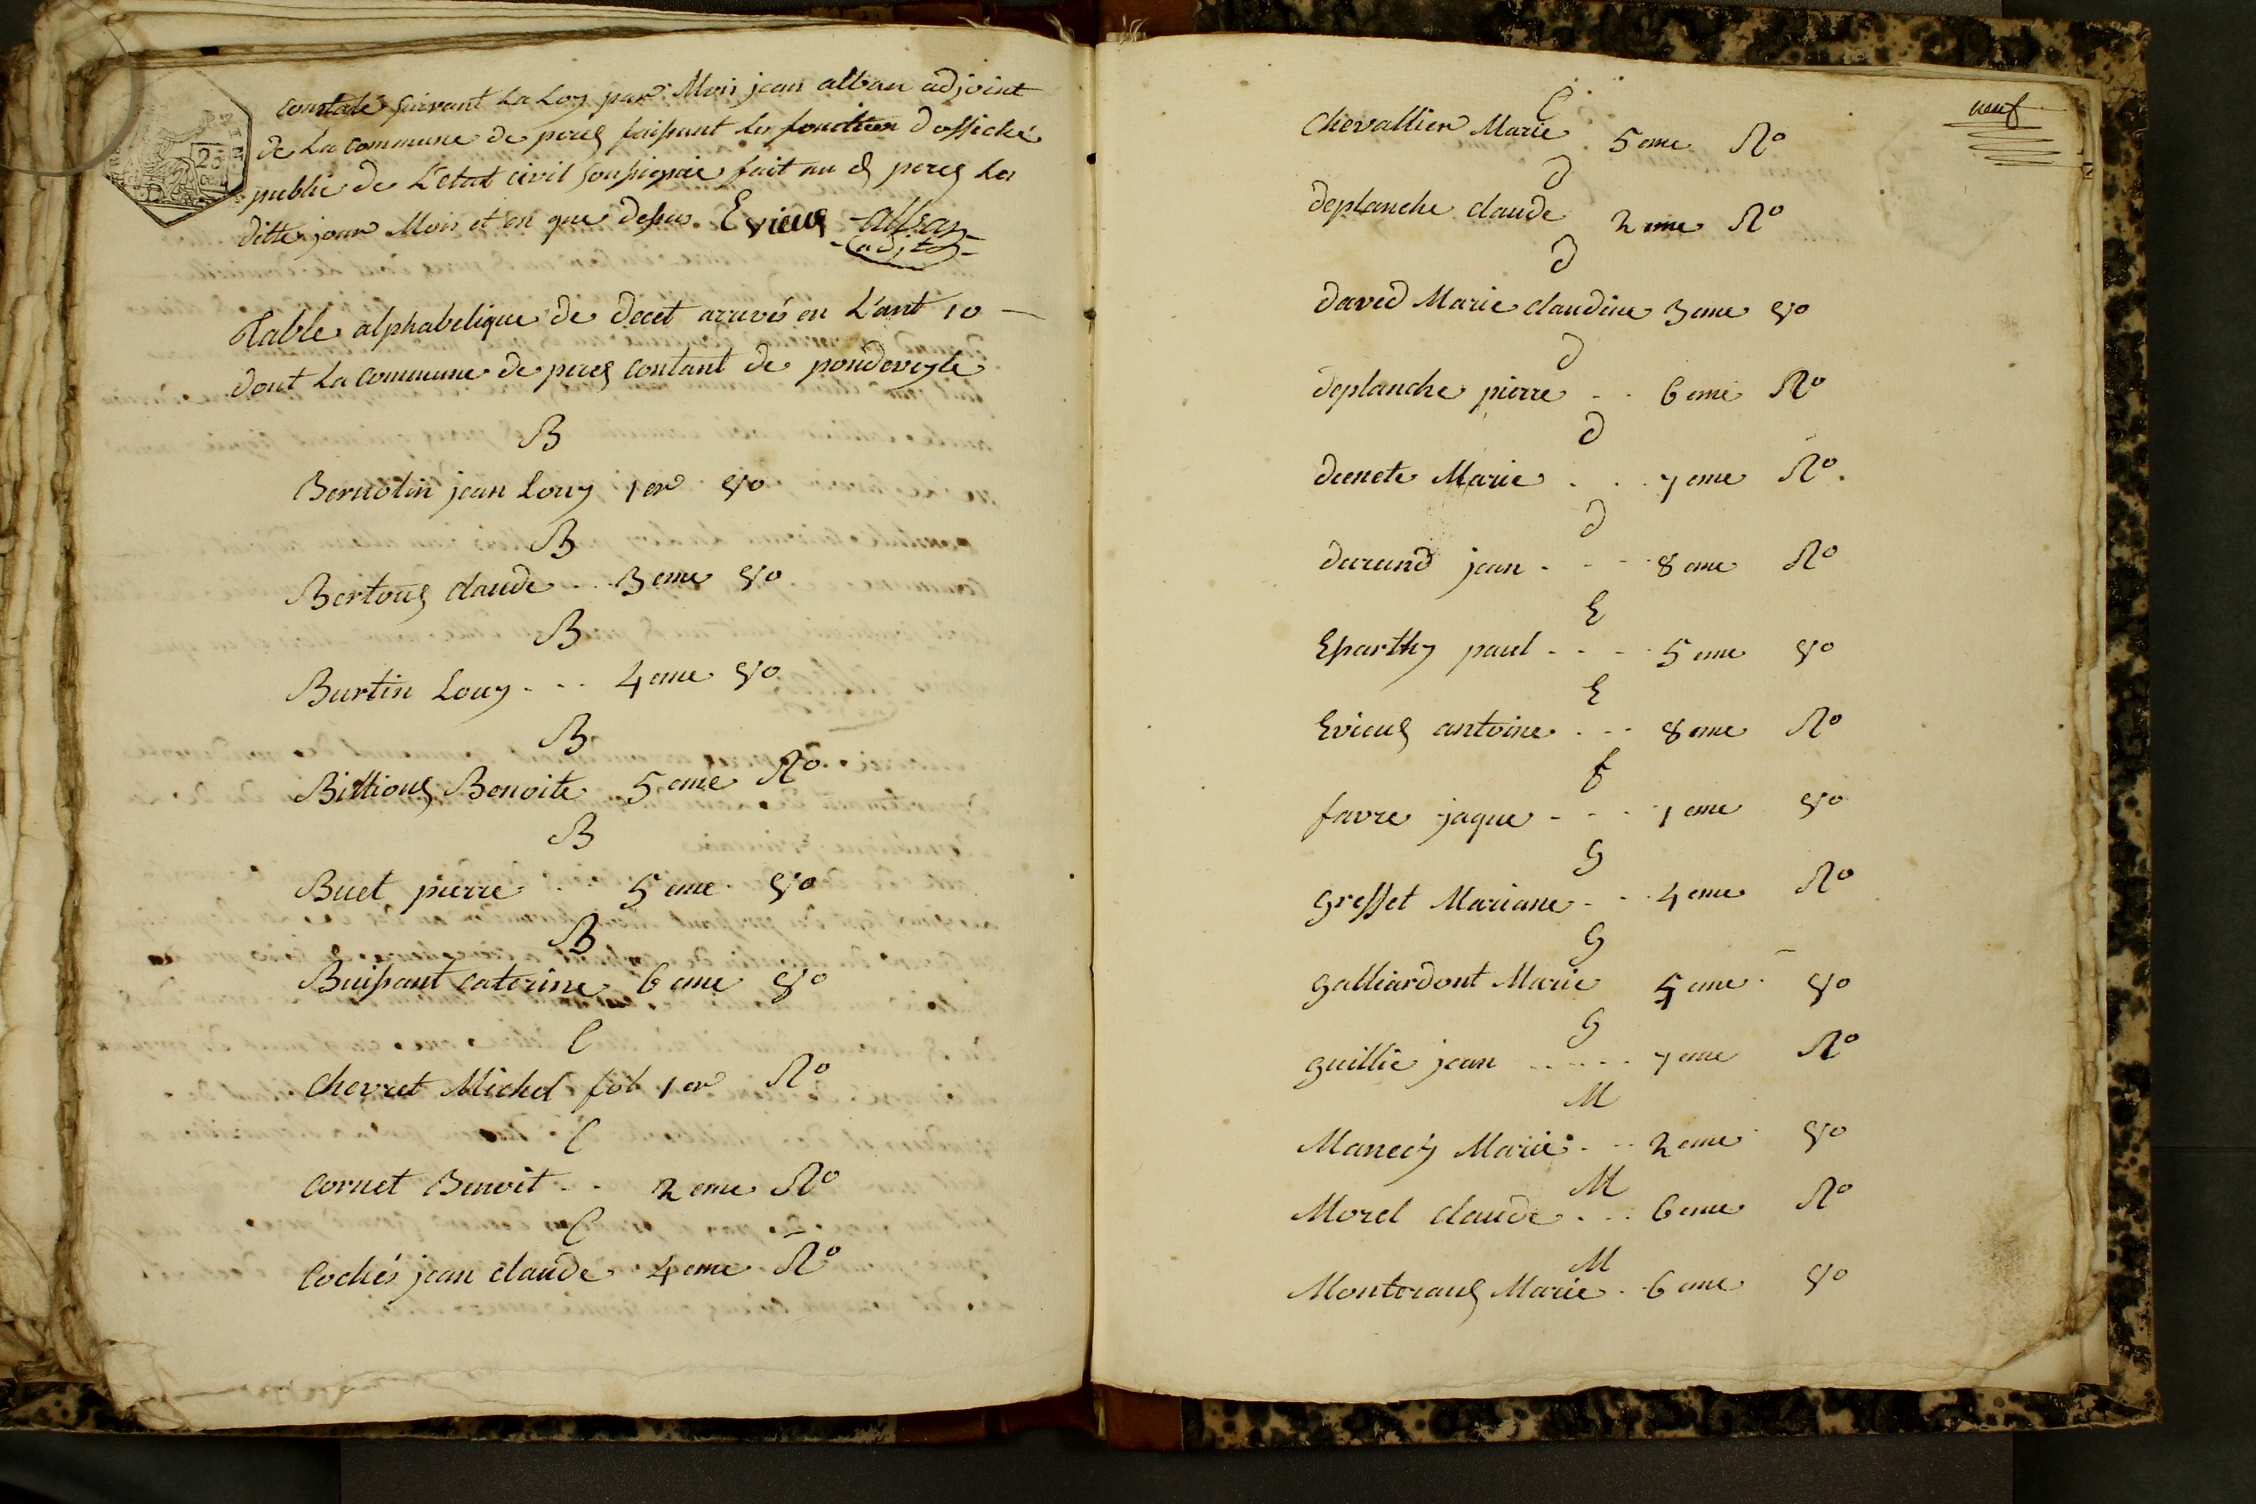 constaté suivant La Loy par Moi jean alban adjoint
de La commune de perex faisant les fonction d officié
public de L'etat civil soussignie fait au d perex les
ditte jour Mois et an que dessus. Evieux alban
adjt
25
Table alphabetique de decet arrivés en L'ant 10
dont La commune de perex contant de pondeveyle
B
Bernolin jean Louy 1er Vo
B
Bertoux claude .. 3eme Vo
B
Burtin Louy - - - 4eme Vo
B
Billioux Benoite 5eme Ro
B
Buet pierre . 5eme Vo
B
Buissant Caterine 6eme Vo
C
Chevret Michel fol 1er Ro
C
Cornet Benoit - - 2eme Ro
C
Cochés jean claude 4eme Ro
neuf
C
Chevallier Marie 5eme Ro
d
deplanche claude 2eme Ro
d
david Marie claudine 3eme Vo
d
deplanche pierre - - 6eme Ro
d
deenete Marie . . . 7eme Ro.
d
durand jean - - - 8eme Ro
E
Eparthy paul - - - 5eme Vo
E
Evieux antoine . - - 8eme Ro
f
favre jaque - - - 1eme Vo
G
Gresset Mariane - - - 4eme Ro
G
Galliardont Marie 5eme Vo
G
Guillie jean ..... 7eme Ro
M
Manecy Marie. - - 2eme Vo
M
Morel claude . . . 6eme Ro
M
Monteraux Marie . 6eme Vo